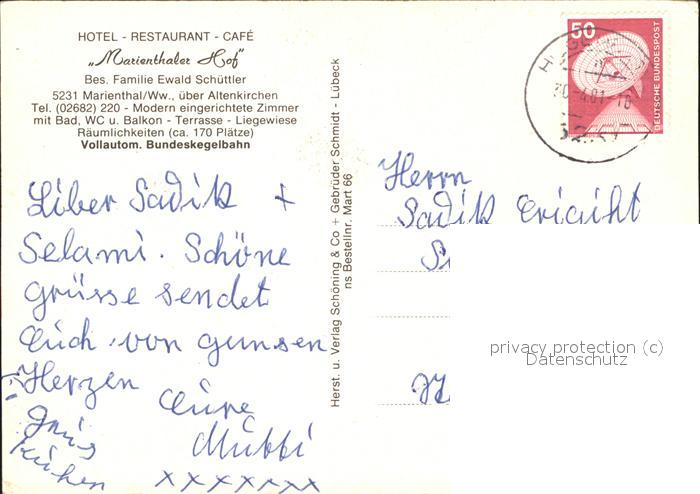 HOTEL - RESTAURANT - CAFÉ
„Marienthaler Hof"
Bes. Familie Ewald Schüttler
5231 Marienthal/Ww., über Altenkirchen
Tel. (02682) 220 - Modern eingerichtete Zimmer
mit Bad, WC u. Balkon - Terrasse - Liegewiese
Räumlichkeiten (ca. 170 Plätze)
Vollautom. Bundeskegelbahn
Liber Sadik +
Selami. Schöne
Grüsse sendet
Euch von gunsen
Herzen Eure
Mutti
xxxxxxx
Herst. u. Verlag Schöning & Co + Gebrüder Schmidt - Lübeck
ns Bestellnr. Mart 66
50
DEUTSCHE BUNDESPOST
Herrn
Sadik
privacy protection (c)
Datenschutz